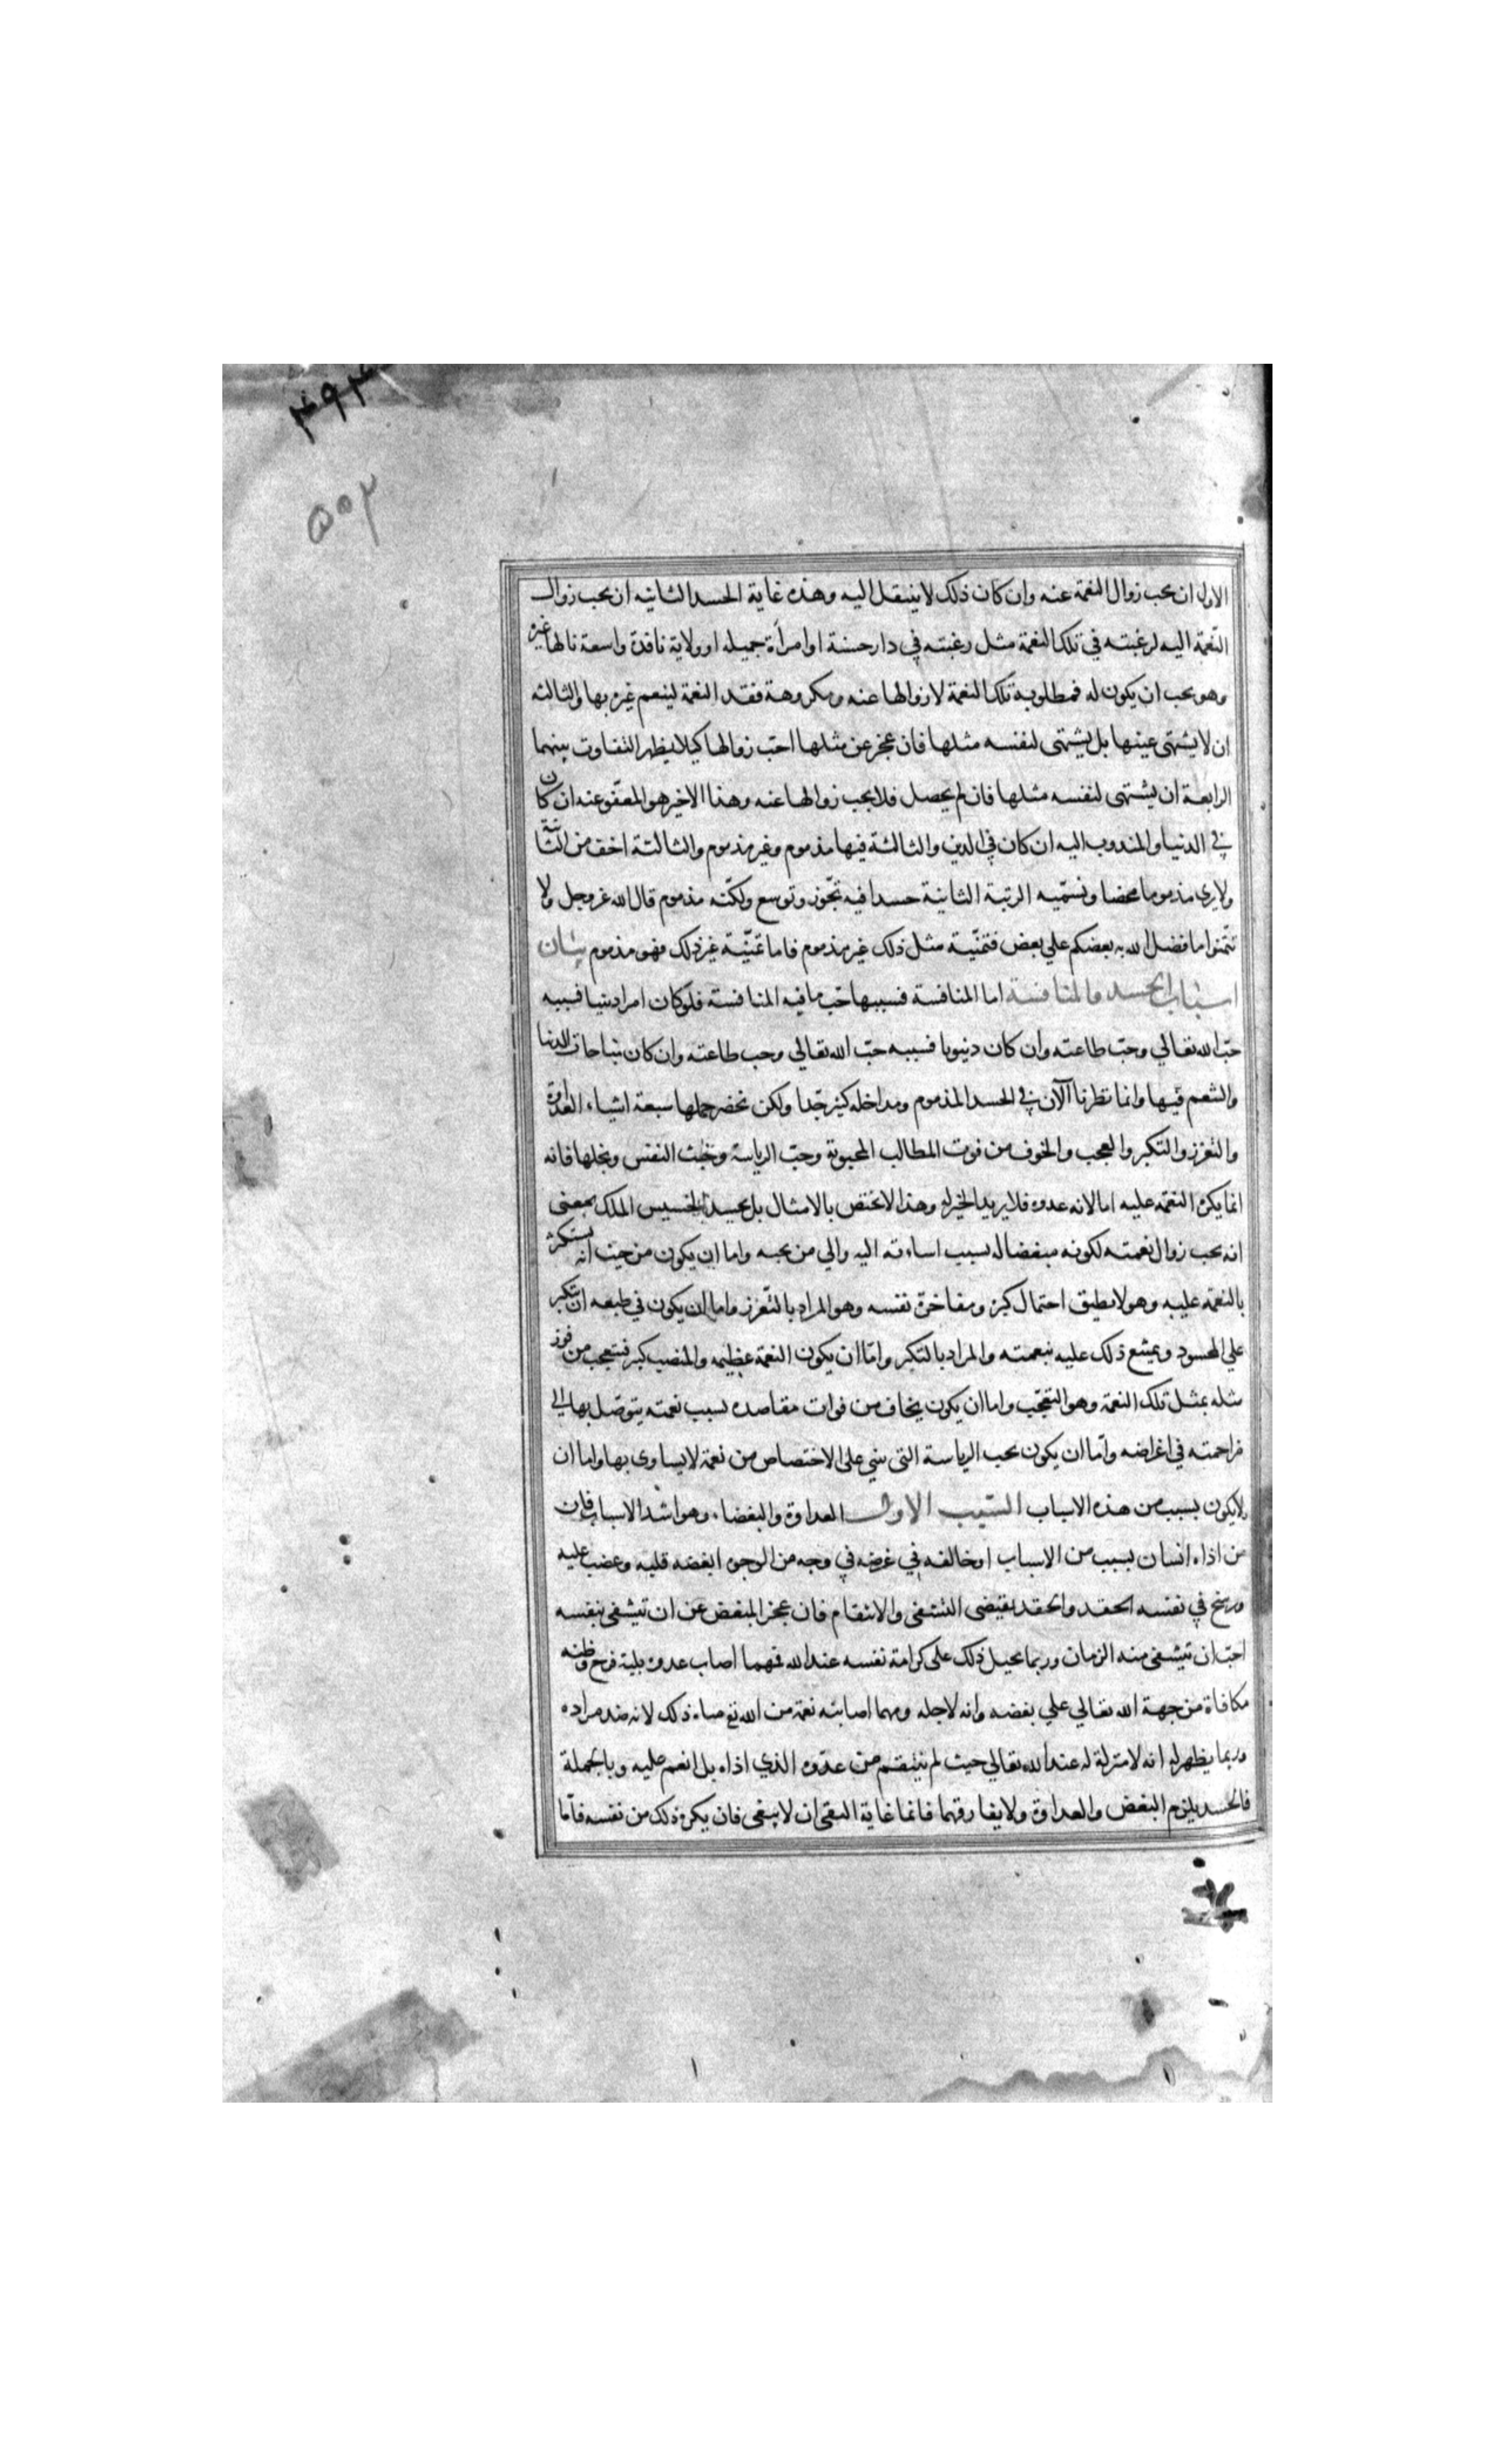 ۴۹۴
۵۰۲
الاولى ان يحب زوال النعمة عنه وان كان ذلك لا ينتقل اليه وهذه غاية الحسد الثانيه ان يحب زوال
النّعمة اليه لرغبته في تلك النعمة مثل رغبته في دار حسنة او امرأة جميله او ولاية نافذة واسعة نالها غيره
وهو يحب ان يكون له فمطلوبه تلك النعمة لا زوالها عنه ومكروهة فقد النعمة لينعم غيره بها والثالثه
ان لا يشتهى عينها بل يشتهى لنفسه مثلها فان عجز عن مثلها احبّ زوالها كيلا يظهر التفاوت بينهما
الرابعة ان يشتهى لنفسه مثلها فان لم يحصل فلا يحب زوالها عنه وهذا الاخير هو المعفو عنه ان كان
في الدنيا والمندوب اليه ان كان في الدين والثالثة فيها مذموم وغير مذموم والثالثة اخف من الثانية
ولا يرى مذموما محضا ونسمّيه الرتبة الثانية حسدا فيه تجّوز وتوسع ولكنّه مذموم قال الله عز وجل ولا
تتمنوا ما فضل الله به بعضكم علي بعض فتمنّية مثل ذلك غير مذموم فاما تمنّية غير ذلك فهو مذموم بيان
اسباب الحسد والمنافسة اما المنافسة فسببها حبّ ما فيه المنافسة فلو كان امرا دينيا فسببه
حبّ الله تعالي وحبّ طاعته وان كان دنيويا فسببه حبّ الله تعالي وحب طاعته وان كان مباحات الدنيا
والتنعم فيها وانما نظرنا الآن في الحسد المذموم ومداخله كثيرة جدا ولكن نحصر جملها سبعة اشياء العداوة
والتعزز والتكبر والعجب والخوف من فوت المطالب المحبوبة وحبّ الرياسة وخبث النفس وبخلها فانه
انما يكره النعمة عليه اما لانه عدوه فلا يريد الخير له وهذا لا يختص بالامثال بل يحسد الخسيس الملك بمعنى
انه يحب زوال نعمته لكونه مبغضا له بسبب اساءته اليه والي من يحبه واما ان يكون من حيث انه يستكبر
بالنعمة عليه وهو لا يطيق احتمال كبره ومفاخرة نفسه وهو المراد بالتّعزز واما ان يكون في طبعه ان يتكبر
علي المحسود ويمتنع ذلك عليه بنعمته والمراد بالتكبر وامّا ان يكون النعمة عظيمه والمنصب كبير فتعجب من فوز
مثله بمثل تلك النعمة وهو التعجّب واما ان يكون يخاف من فوات مقاصده بسبب نعمته يتوصّل بها الي
مزاحمته في اغراضه وامّا ان يكون يحب الرياسة التي تبنى على الاختصاص من نعمة لا يساوى بها واما ان
لا يكون بسبب من هذه الاسباب السّبب الاول العداوة والبغضاء وهو اشد الاسباب فان
من اذاه انسان بسبب من الاسباب او خالفه في غرضه في وجه من الوجوه ابغضه قلبه وغضب عليه
ورسخ في نفسه الحقد والحقد يقتضى التشفى والانتقام فان عجز المبغض عن ان تيشفى بنفسه
احبّ ان تيشفى منه الزمان وربما يحيل ذلك على كرامة نفسه عند الله فمهما اصاب عدوه بلية فرح وظنه
مكافاة من جهة الله تعالي علي بغضه وانه لاجله ومهما اصابته نعمة من الله تع ساءه ذلك لانه ضد مراده
وربما يظهر له انه لا منزلة له عند الله تعالي حيث لم ينتقم من عدّوه الذي اذاه بل انعم عليه وبالجملة
فالحسد يلزم البغض والعداوة ولا يفارقهما فانما غاية التقى ان لا يبغى فان يكره ذلك من نفسه فاّما